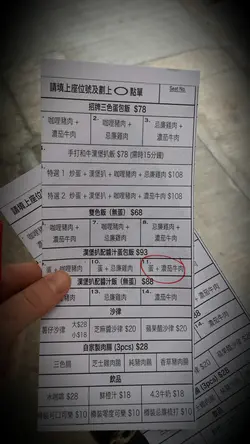 請填上座位號及劃上 ◯ 點單 Seat No.
招牌三色蛋包飯 $78
1. 咖喱豬肉 + 濃茄牛肉
2. 咖喱豬肉 + 忌廉雞肉
3. 忌廉雞肉 + 濃茄牛肉
手打和牛漢堡扒飯 $78 (限時15分鐘)
特選 1 炒蛋 + 漢堡扒 + 咖喱豬肉 + 忌廉雞肉 $108
特選 2 炒蛋 + 漢堡扒 + 咖喱豬肉 + 濃茄牛肉 $108
雙色飯 (無蛋) $68
咖喱豬肉 + 濃茄牛肉
咖喱豬肉 + 忌廉雞肉
8. 忌廉雞肉 + 濃茄牛肉
漢堡扒配醬汁蛋包飯 $93
蛋 + 咖喱豬肉
10. 蛋 + 忌廉雞肉
11. 蛋 + 濃茄牛肉
漢堡扒配醬汁飯 (無蛋) $88
咖喱豬肉
13. 忌廉雞肉
14. 濃茄牛肉
沙律
薯仔沙律 大$28 小$18
芝麻醬沙律 $20
蘋果醋沙律 $20
自家製肉腸 (3pcs) $28
三色腸
芝士雞肉腸
純豬肉腸
香草豬肉腸
飲品
冰咖啡 $28
鮮橙汁 $18
4.3牛奶 $18
樽裝可口可樂 $10
樽裝零度可樂 $10